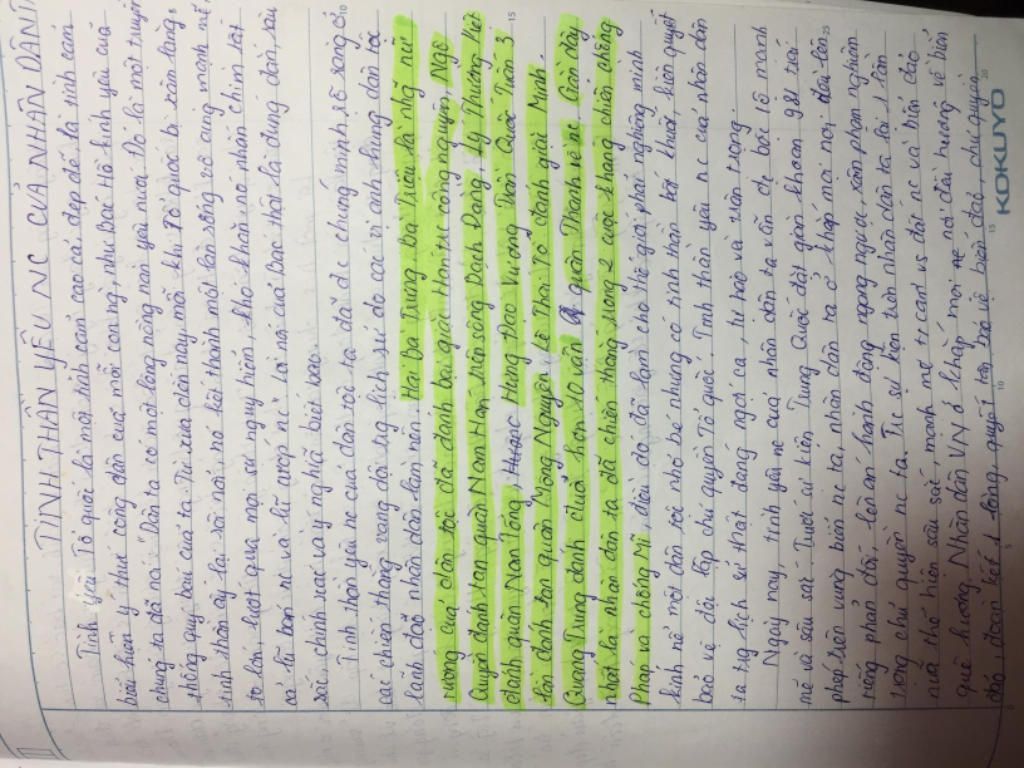 TINH THẦN YÊU NC CỦA NHÂN DÂN
Tình yêu Tổ quốc là một tình cảm cao cả, đẹp đẽ là tình cảm
biểu hiện ý thức công dân của mỗi con ng, như Bác Hồ kính yêu của
chúng ta đã nói "Dân ta có một lòng nồng nàn yêu nước. Đó là một truyền
thống quý báu của ta. Từ xưa đến nay, mỗi khi Tổ quốc bị xâm lăng,
tinh thần ấy lại sôi nổi, nó kết thành một làn sóng vô cùng mạnh mẽ,
to lớn, lướt qua mọi sự nguy hiểm, khó khăn, nó nhấn chìm tất
cả lũ bán nc và lũ cướp nc". Lời nói của Bác thật là đúng đắn, sâu
sắc, chính xác và ý nghĩa biết bao.
Tinh thần yêu nc của dân tộc ta đã đc chứng minh rõ ràng ở
các chiến thắng vang dội trg lịch sử do các vị anh hùng dân tộc
lãnh đạo nhân dân làm nên. Hai Bà Trưng, Bà Triệu, là những nữ
tướng của dân tộc đã đánh bại giặc Hán trc công nguyên, Ngô
Quyền đánh tan quân Nam Hán trên sông Bạch Đằng, Lý Thường Kiệt
đánh quân Nam Tống, Hưng Đạo Vương Trần Quốc Tuấn 3
lần đánh tan quân Mông Nguyên, Lê Thái Tổ đánh giải Minh.
Quang Trung đánh đuổi hơn 10 vạn quân Thanh về nc. Gần đây
nhất là nhân dân ta đã chiến thắng trong 2 cuộc kháng chiến chống
Pháp và chống Mĩ, điều đó đã làm cho thế giới phải nghiêng mình
kính nể một dân tộc nhỏ bé nhưng có tinh thần bất khuất, kiên quyết
bảo vệ độc lập chủ quyền Tổ quốc. Tinh thần yêu nc của nhân dân
ta trg lịch sử thật đáng ngợi ca, tự hào và trân trọng.
Ngày nay, tinh yêu nc của nhân dân ta vẫn đc bộc lộ mạnh
mẽ và sâu sắt. Trước sự kiện Trung Quốc đặt giàn khoan 981 trái
phép trên vùng biển nc ta, nhân dân ta ở khắp mọi nơi đều lên
tiếng phản đối, lên án hành động ngông ngược, xâm phạm nghiêm
trọng chủ quyền nc ta. Từ sự kiện trên nhân dân ta lại 1 lần
nữa thể hiện sâu sắc, mạnh mẽ t/c cam vs đất nc và biển đảo
quê hương. Nhân dân VN ở khắp mọi nơi đều hướng về biển
đảo, đoàn kết 1 lòng, quyết tâm bảo vệ biển đảo, chủ quyền
KOKUYO
5
10
15
20
10
15
25